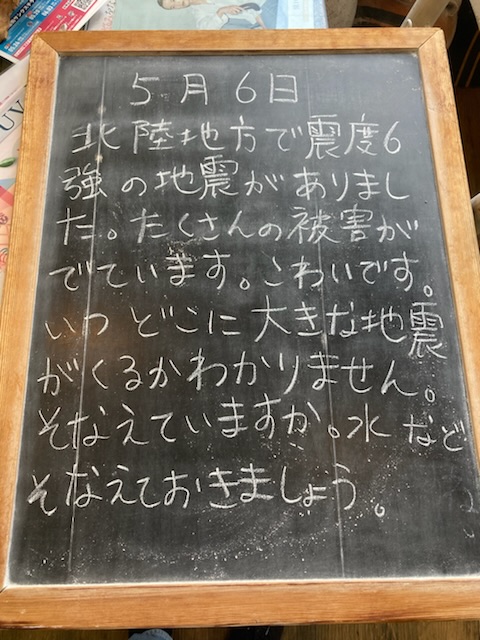 5月6日
北陸地方で震度6
強の地震がありまし
た。たくさんの被害が
でています。こわいです。
いつどこに大きな地震
がくるかわかりません。
そなえていますか。水など
そなえておきましょう。